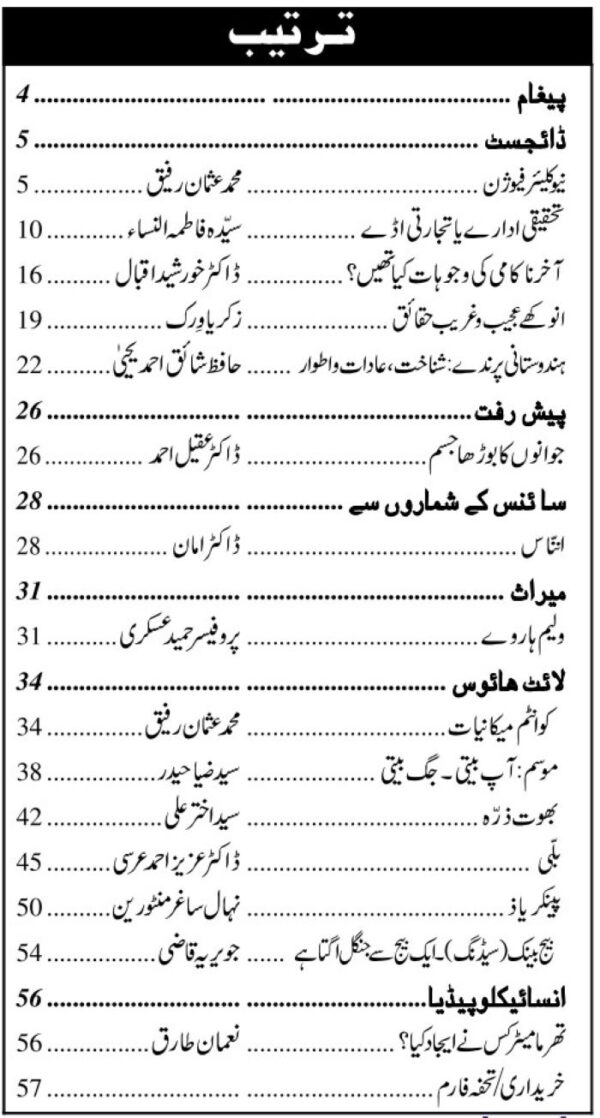 ترتیب
پیغام ........................ 4
ڈائجسٹ ........................ 5
نیوکلیئر فیوژن ............ محمد عثمان رفیق ............ 5
تحقیقی ادارے یا تجارتی اڈے ............ سیّدہ فاطمہ النساء ............ 10
آخر ناکامی کی وجوہات کیا تھیں؟ ............ ڈاکٹر خورشید اقبال ............ 16
انوکھے عجیب و غریب حقائق ............ زکریا وِرک ............ 19
ہندوستانی پرندے: شناخت، عادات و اطوار ....... حافظ شائق احمد یحییٰ ............ 22
پیش رفت ........................ 26
جوانوں کا بوڑھا جسم ............ ڈاکٹر عقیل احمد ............ 26
سائنس کے شماروں سے ........................ 28
انّاس ............ ڈاکٹر امان ............ 28
میراث ........................ 31
ولیم ہاروے ............ پروفیسر حمید عسکری ............ 31
لائٹ ھائوس ........................ 34
کوانٹم میکانیات ............ محمد عثمان رفیق ............ 34
موسم: آپ بیتی ۔ جگ بیتی ............ سید ضیا حیدر ............ 38
بھوت ذرّہ ............ سید اختر علی ............ 42
بلّی ............ ڈاکٹر عزیز احمد عرسی ............ 45
پینکریاذ ............ نہال ساغر منٹورین ............ 50
بیج بینک (سیڈنگ)۔ ایک بیج سے جنگل اگتا ہے ...... جویریہ قاضی ............ 54
انسائیکلوپیڈیا ........................ 56
تھرمامیٹر کس نے ایجاد کیا؟ ............ نعمان طارق ............ 56
خریداری/تحفہ فارم ........................ 57